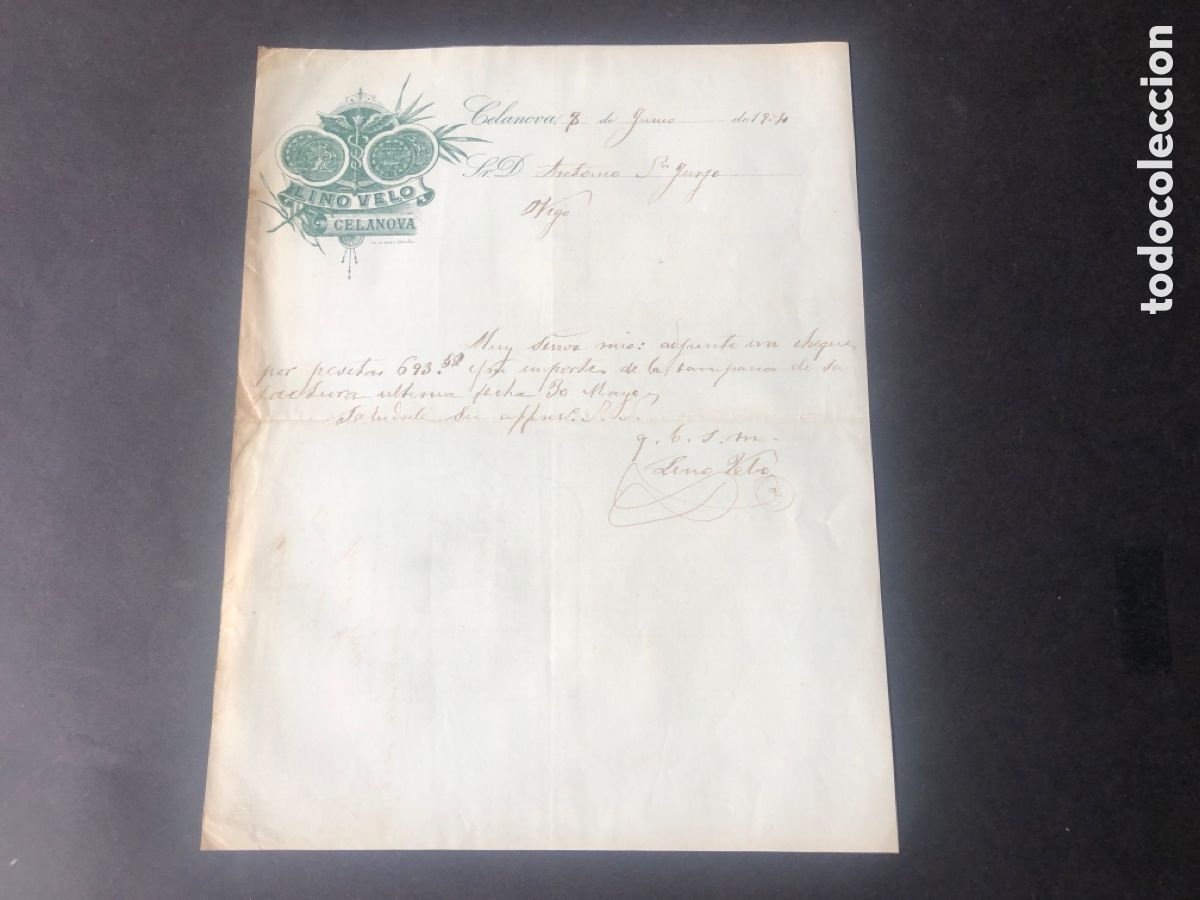 LINO VELO
CELANOVA
Celanova, 8 de Junio de 19
Sr. D. Antonio Sn
Vigo
Muy señor mio: adjunto un cheque
por pesetas 693.50 importe de la de su
factura ultima fecha 30 Mayo y
Saludale su S. S.
q. b. s. m.
Lino Velo
todocoleccion